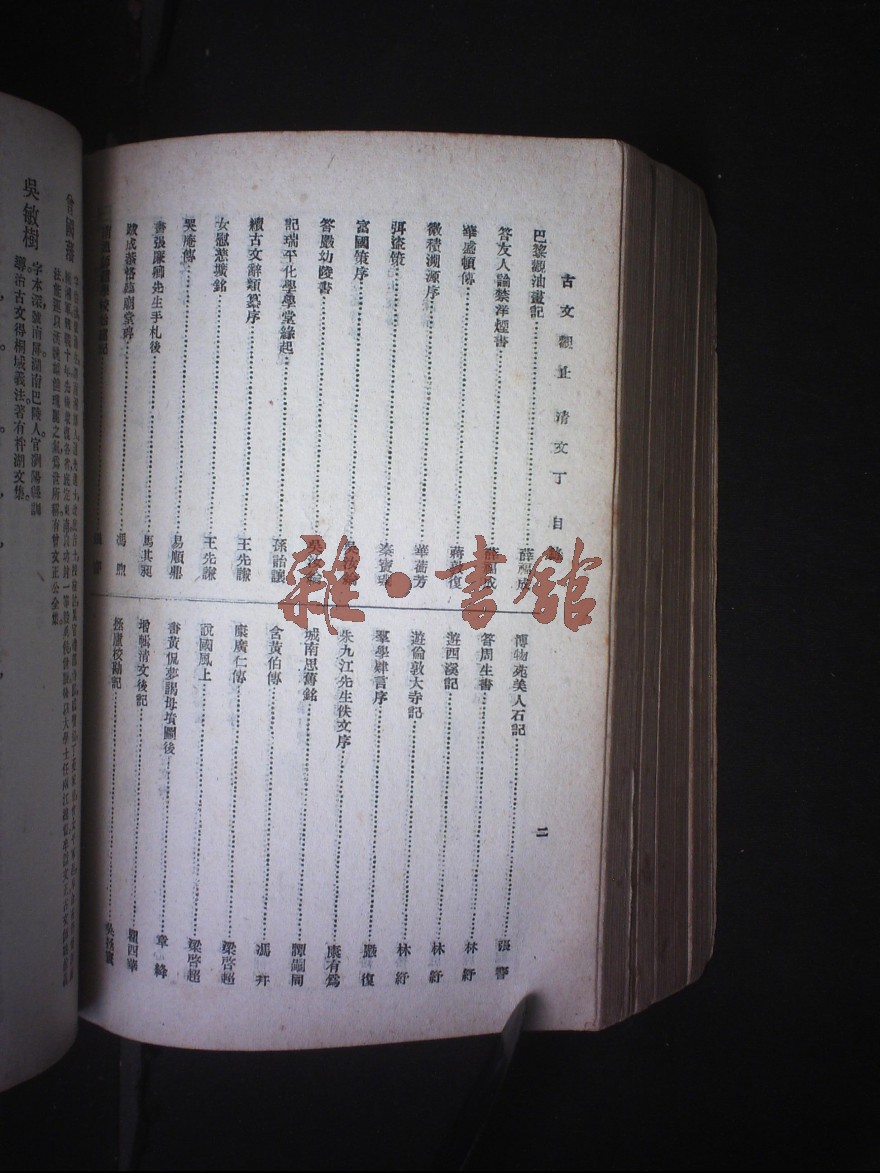 古文觀止 清文丁 目錄
二
巴黎觀油畫記 薛福成
答友人論禁洋煙書 薛福成
華盛頓傳 蔣敦復
微積溯源序 華蘅芳
弭盜策 秦寶璣
富國策序 吳汝綸
答嚴幼陵書 吳汝綸
記瑞平化學學堂緣起 孫詒讓
續古文辭類纂序 王先謙
女慰慈壙銘 王先謙
哭庵傳 易順鼎
書張廉卿先生手札後 馬其昶
跋成恭恪臨廟堂碑 馮煦
博物苑美人石記 張謇
答周生書 林紓
遊西溪記 林紓
遊倫敦大寺記 林紓
羣學肄言序 嚴復
朱九江先生佚文序 康有爲
城南思舊銘 譚嗣同
含黃伯傳 馮幵
康廣仁傳 梁啓超
說國風上 梁啓超
書黃侃夢謁母墳圖後 章絳
增輯清文後記
拯虛校勘記
曾國藩
吳敏樹
字本深,號南屏,湖南巴陵人,官瀏陽縣訓
導,治古文得桐城義法,著有柈湖文集。
雜·書館